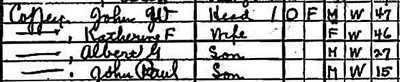 Coffey, John W Head 1 O F M W 47
—, Katherine F Wife F W 46
—, Albert G Son M W 27
—, John Paul Son M W 15